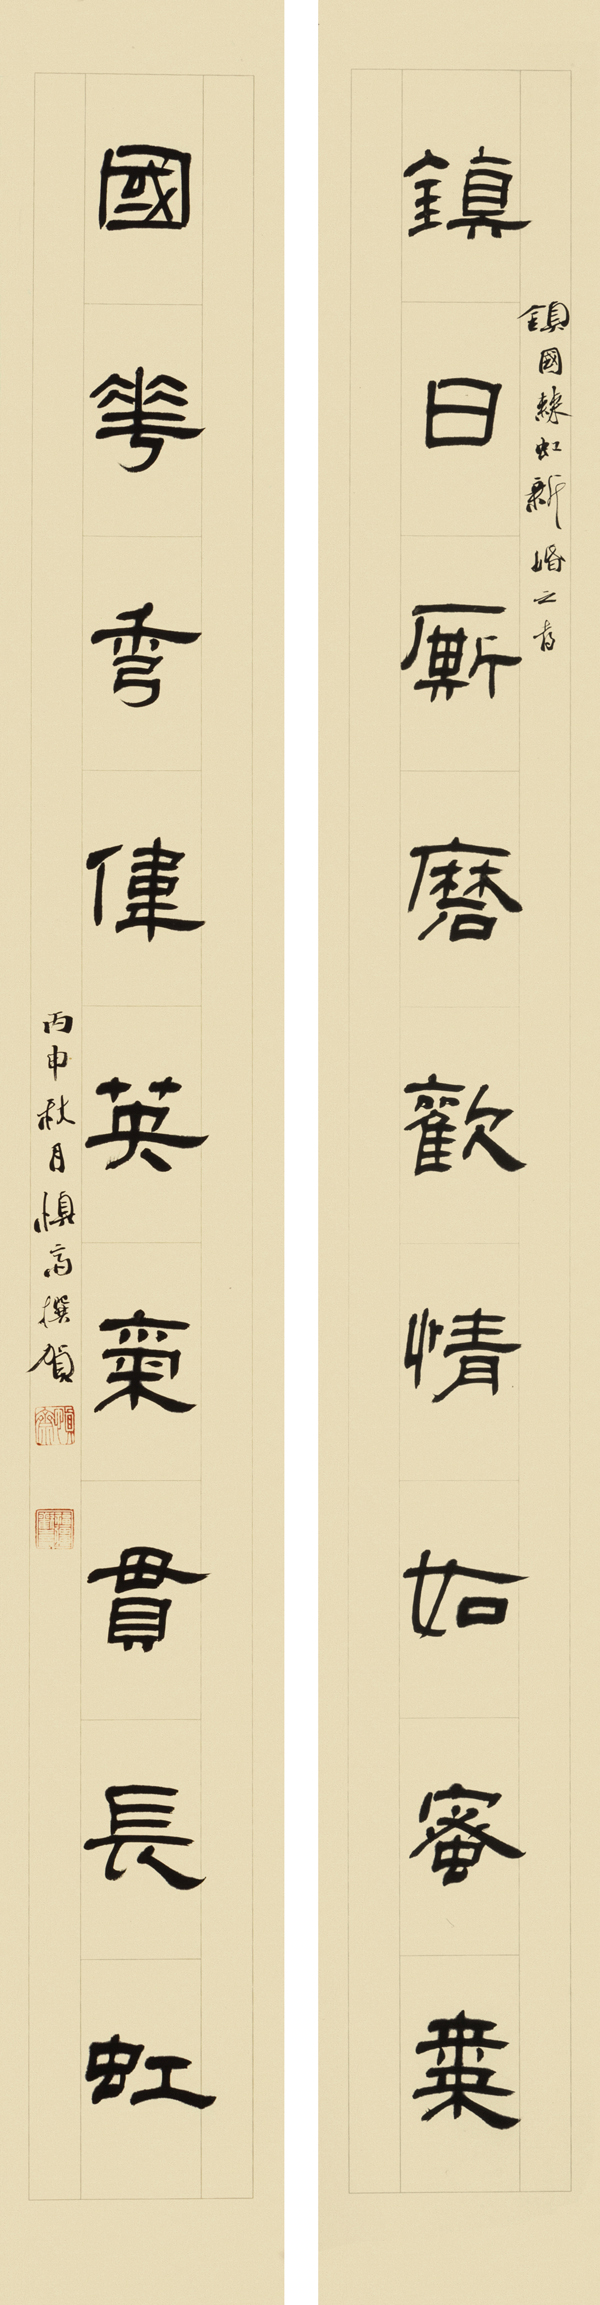 鎮日廝磨歡情如蜜棗
鎮國虹新婚之喜
國華秀偉英氣貫長虹
丙申秋月慎齋撰賀